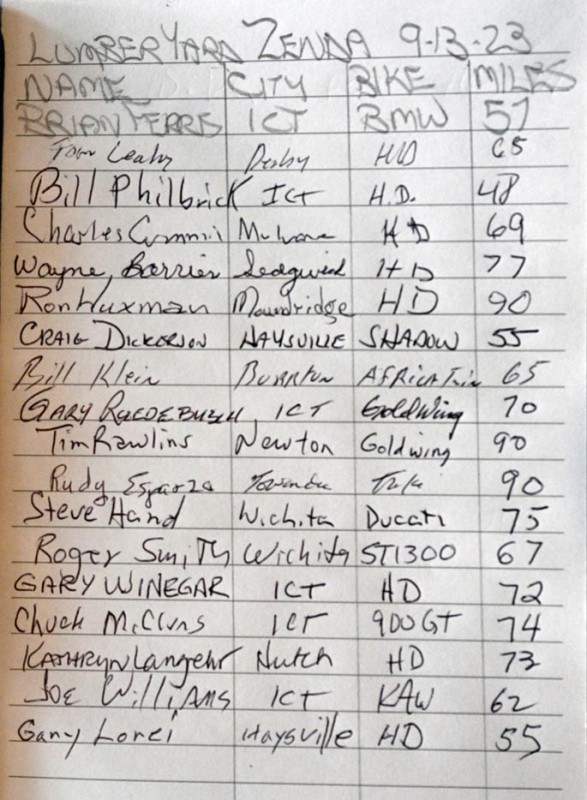 LUMBERYARD ZENDA 9-13-23
NAME CITY BIKE MILES
BRIAN FERRIS ICT BMW 57
Tom Leahy Derby HD 65
Bill Philbrick ICT H.D. 48
Charles Mulvane HD 69
Wayne Barrier Sedgwick HD 77
Ron Huxman Moundridge HD 90
CRAIG DICKERSON HAYSVILLE SHADOW 55
Bill Klein Burrton AfricaTwin 65
GARY RUEDEBUSH ICT GoldWing 70
Tim Rawlins Newton Goldwing 90
Rudy Esparza 90
Steve Hand Wichita Ducati 75
Roger Smith Wichita ST1300 67
GARY WINEGAR ICT HD 72
Chuck ICT 900GT 74
KATHRYN Hutch HD 73
JOE WILLIAMS ICT KAW 62
Gary Lorei Haysville HD 55